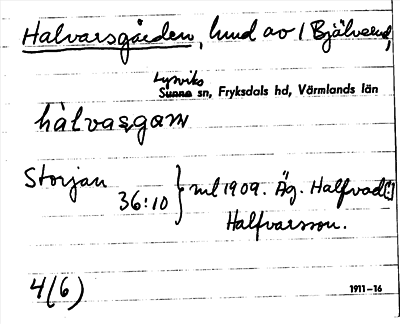 Halvarsgården, hmd av 1 Bjälverud,
Lysviks
Sunne sn, Fryksdals hd, Värmlands län
hàlvasgaɳ
Storjan
36:10 } ml 1909. Äg. Halfvad[:]
Halfvarsson.
4(6)
1911-16